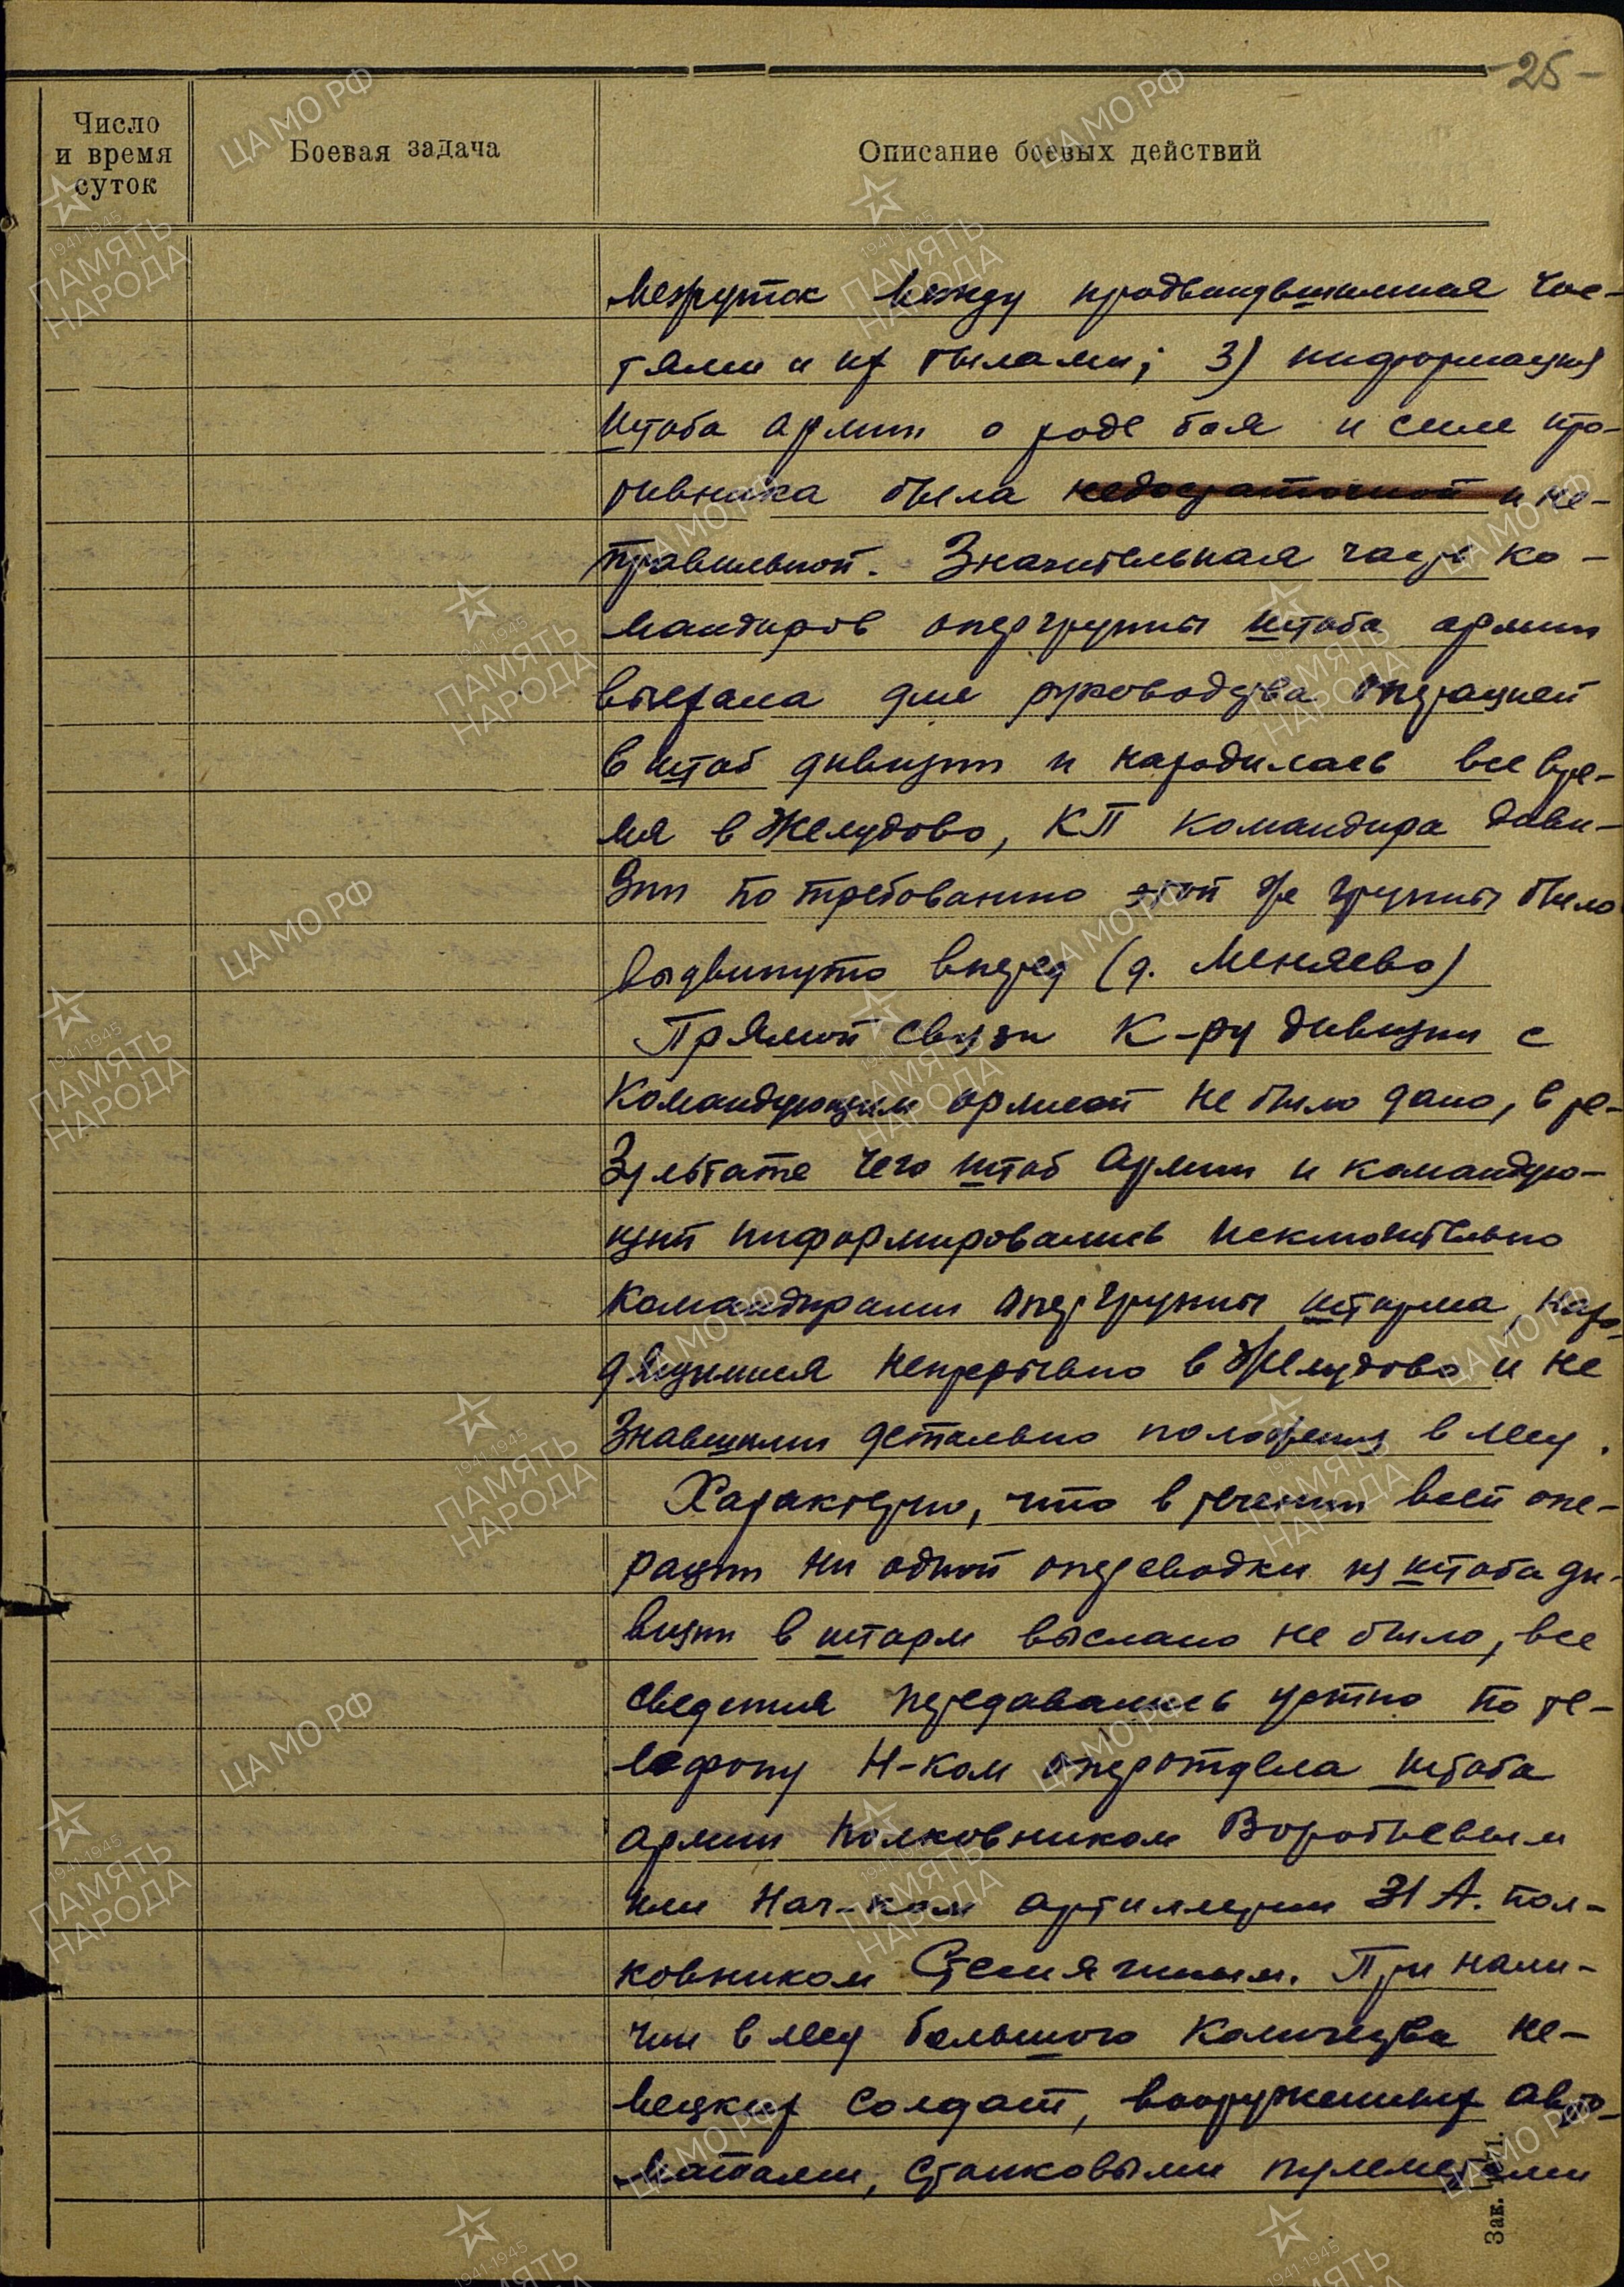 -25-
Число
и время
суток
Боевая задача
Описание боевых действий
межуток между продвинувшимися час-
тями и их тылами; 3) информация
штаба армии о ходе боя и силе про-
тивника была недостаточной и не-
правильной. Значительная часть ко-
мандиров опергруппы штаба армии
выехала для руководства операцией
в штаб дивизии и находилась все вре-
мя в Желудово, КП командира диви-
зии по требованию этой же группы было
выдвинуто вперед (д. Меняево)
Прямой связи к-ру дивизии с
командующим армией не было дано, в ре-
зультате чего штаб армии и командую-
щий информировались исключительно
командирами опергруппы штарма, нахо-
дящимися непрерывно в Желудово и не
знавшими детально положения в лесу.
Характерно, что в течении всей опе-
рации ни одной оперсводки из штаба ди-
визии в штарм выслано не было, все
сведения передавались устно по те-
лефону Н-ком оперотдела штаба
армии полковником Воробьевым
или Нач-ком артиллерии 31 А. пол-
ковником Семячиным. При нали-
чии в лесу большого количества не-
мецких солдат, вооруженных авто-
матами, станковыми пулеметами
Зак. 1471.
ЦА МО РФ
1941-1945
ПАМЯТЬ
НАРОДА